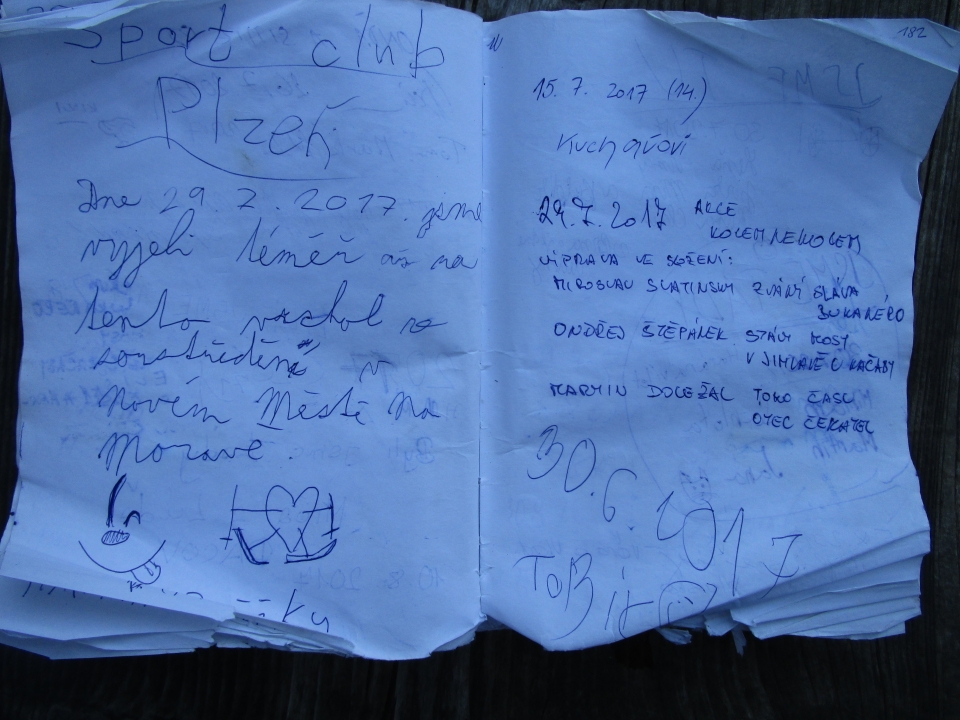 Sport club
Plzeň
Dne 29. 7. 2017. jsme
vyjeli téměř až na
tento vrchol ze
soustředění v
Novém Městě Na
Moravě.
182
15. 7. 2017 (14.)
Kuchařovi
29.7.2017 AKCE
KOLEM NEKOLEM
VÝPRAVA VE SLOŽENÍ:
MIROSLAV SLATINSKÝ ZVANÝ SLÁVA
BUKANÉRO
ONDŘEJ ŠTĚPÁNEK STARÝ KOST
V JIHLAVĚ U KAČABY
MARTIN DOLEŽAL TOHO ČASU
OTEC ČEKATEL
30. 6. 2017